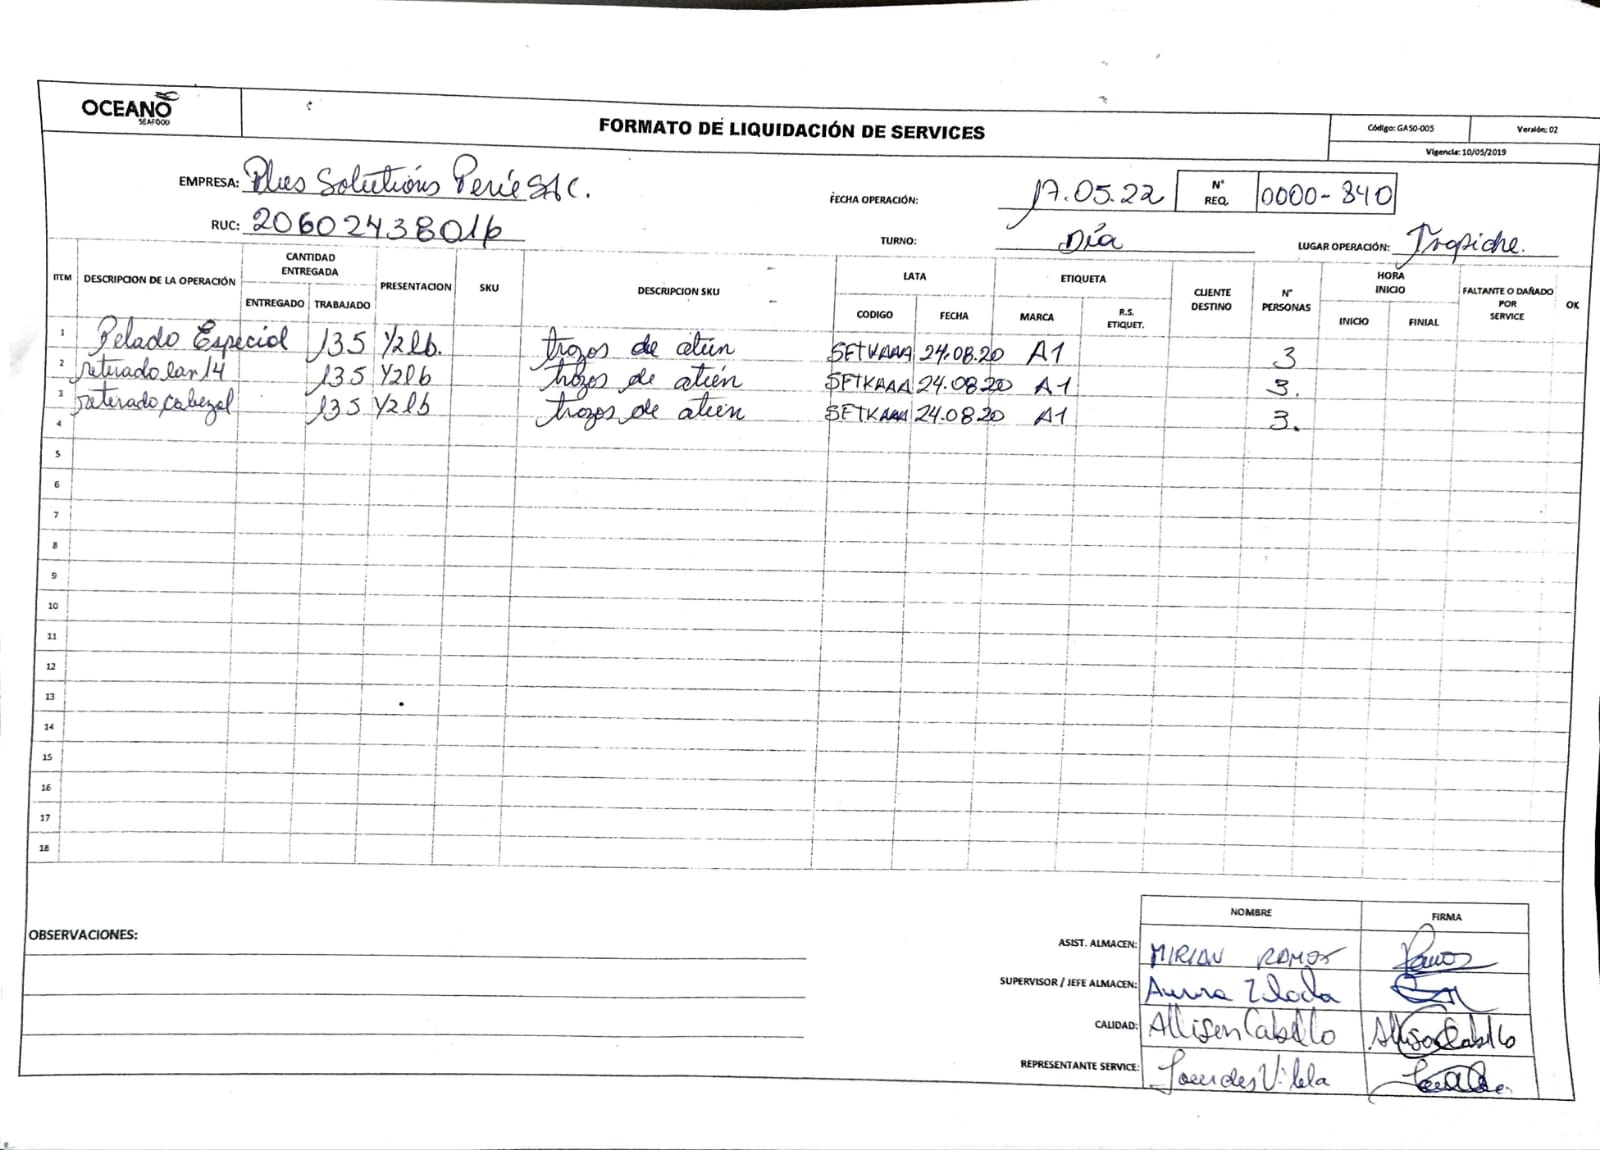 OCEANO SEAFOOD
FORMATO DE LIQUIDACIÓN DE SERVICES
Código: GA50-005 Versión: 02
Vigencia: 10/05/2019
EMPRESA: Plus Solutions Perú SAC.
FECHA OPERACIÓN: 17.05.22 N° REQ. 0000-840
RUC: 20602438016
TURNO: Día LUGAR OPERACIÓN: Tropiche.
ITEM DESCRIPCION DE LA OPERACIÓN CANTIDAD ENTREGADA PRESENTACION SKU DESCRIPCION SKU LATA ETIQUETA CLIENTE DESTINO N° PERSONAS HORA INICIO FALTANTE O DAÑADO POR SERVICE OK
ENTREGADO TRABAJADO CODIGO FECHA MARCA R.S. ETIQUET. INICIO FINIAL
1 Pelado Especial 135 1/2 lb. trozos de atún 24.08.20 A1 3
2 retirado 135 1/2 lb trozos de atún 24.08.20 A1 3.
3 retirado cabezal 135 1/2 lb trozos de atún 24.08.20 A1 3.
4
5
6
7
8
9
10
11
12
13
14
15
16
17
18
NOMBRE FIRMA
OBSERVACIONES:
ASIST. ALMACEN: MIRIAN RAMOS Ramos
SUPERVISOR / JEFE ALMACEN:
CALIDAD: Allison Cabello Allison Cabello
REPRESENTANTE SERVICE: Lourdes Vilela